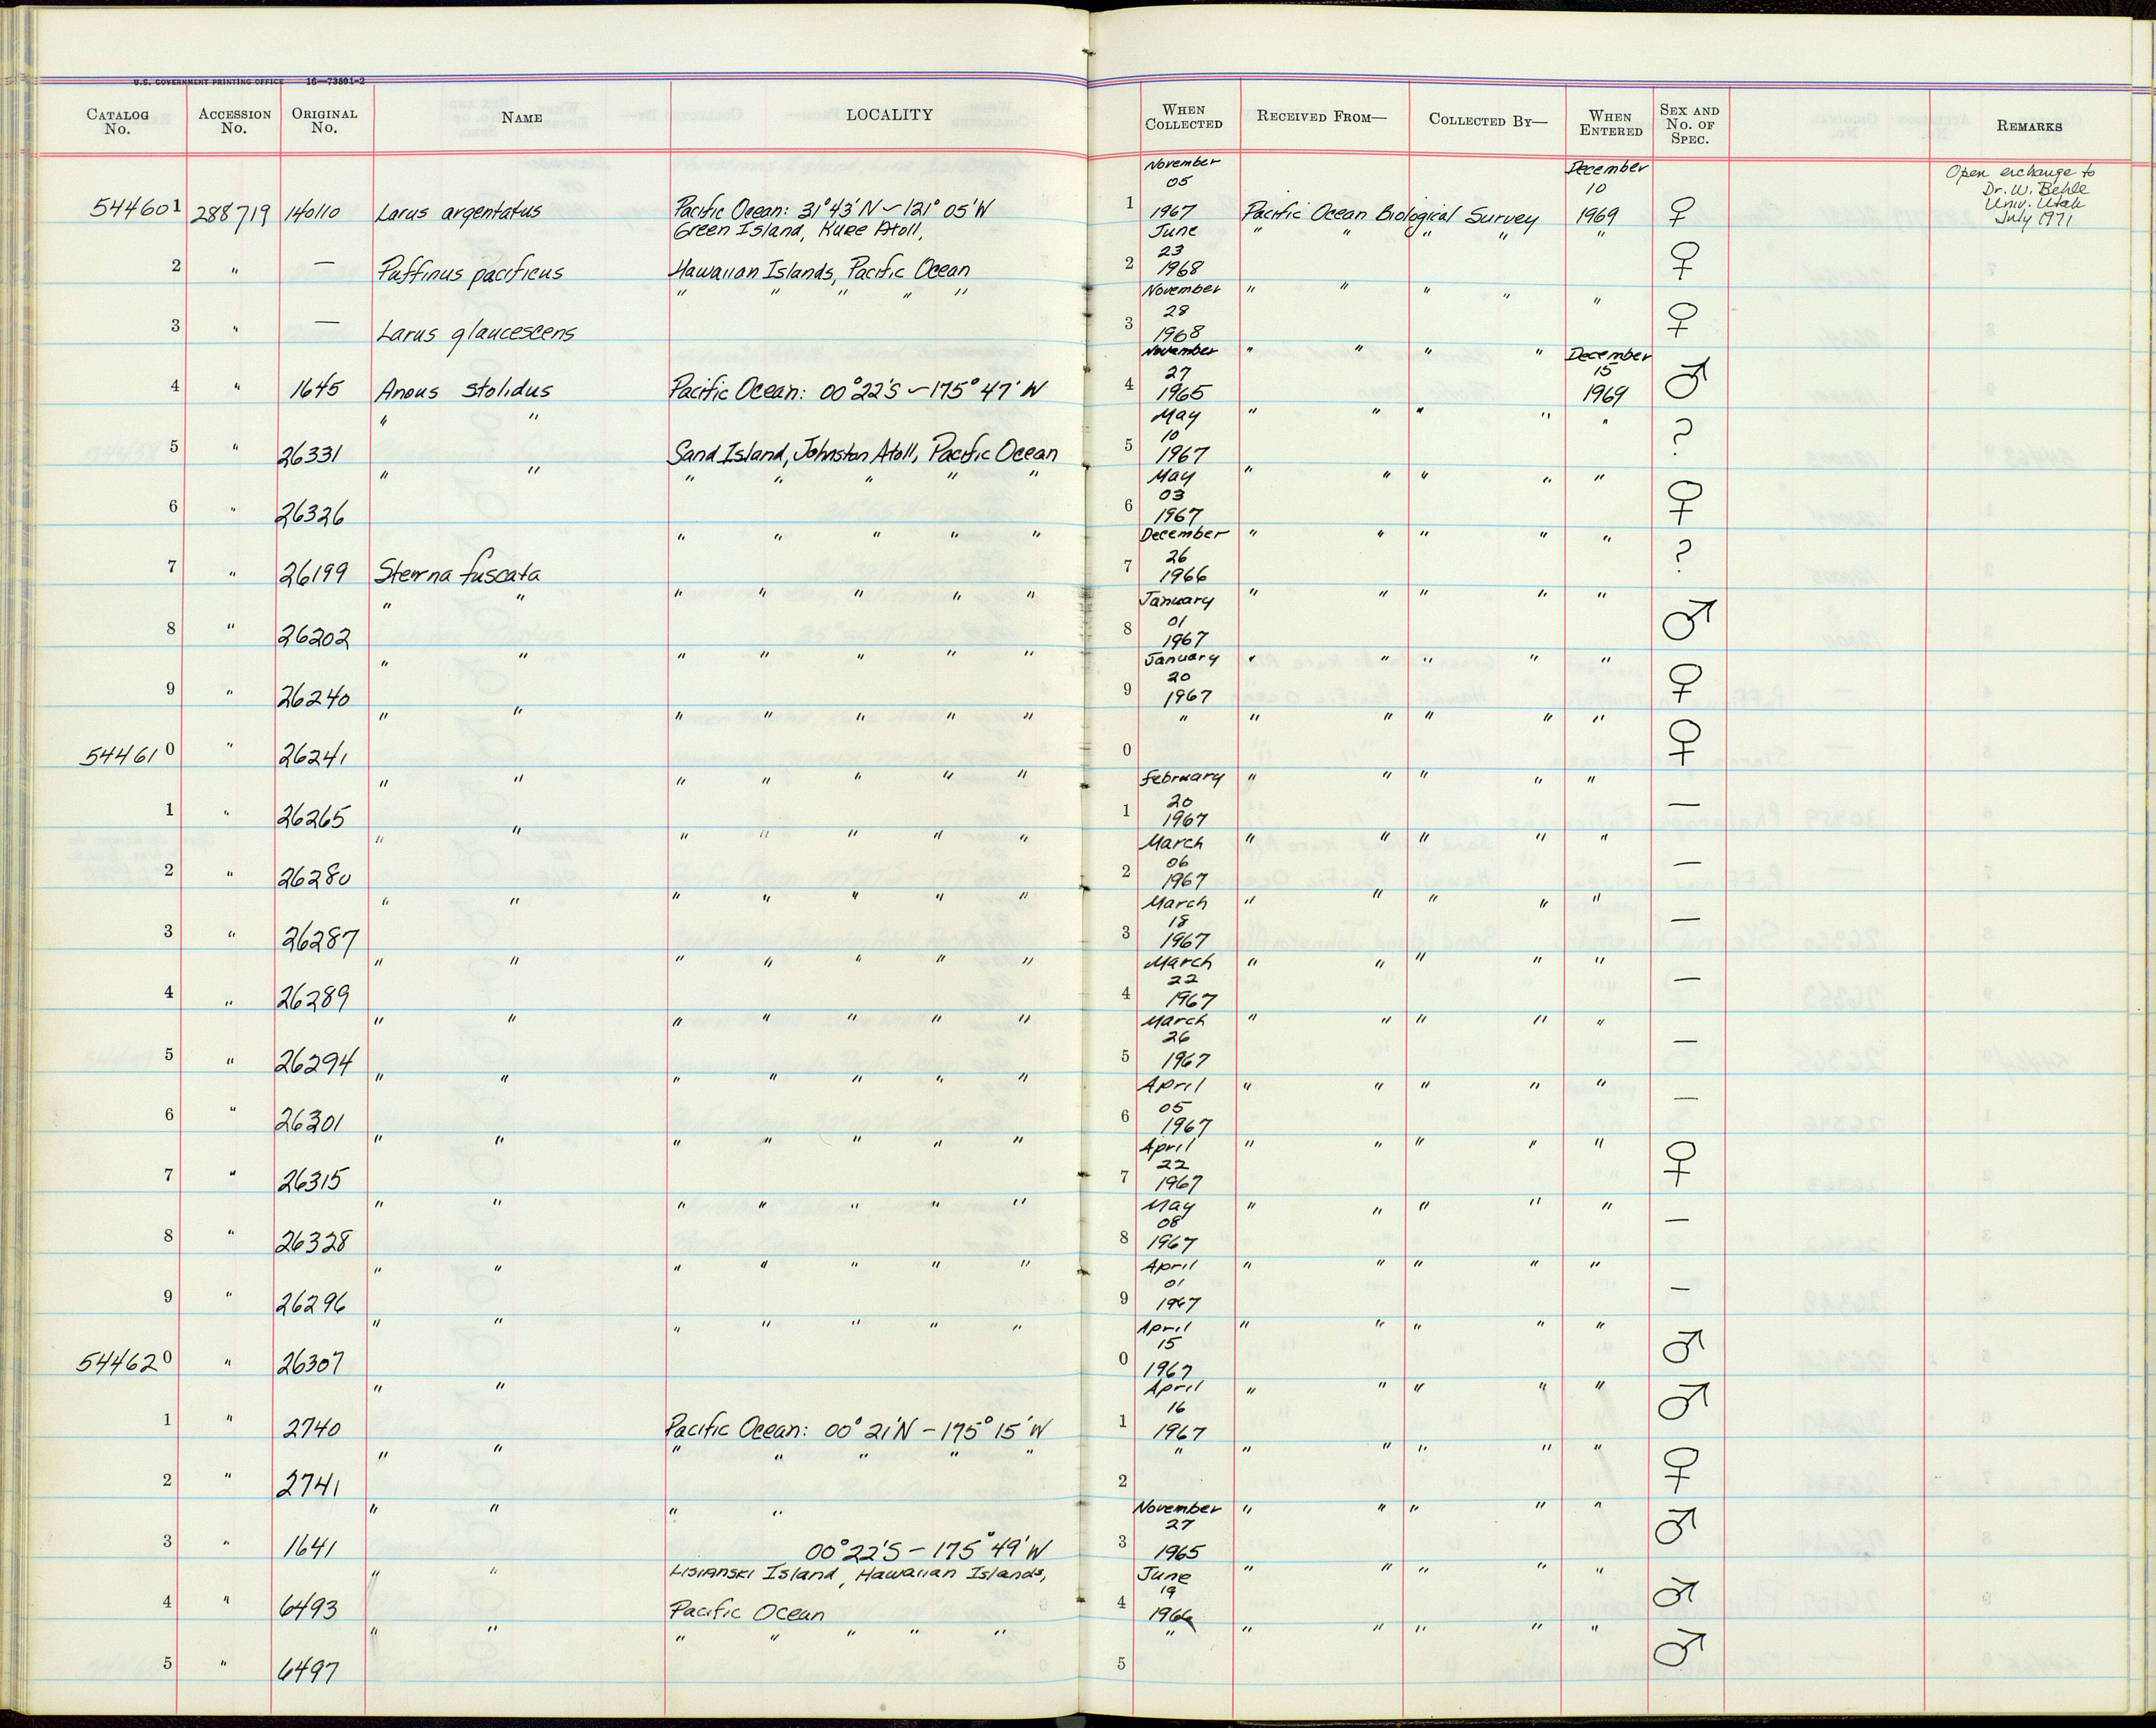 U.S. GOVERNMENT PRINTING OFFICE 16—73591-2
CATALOG No. ACCESSION No. ORIGINAL No. NAME LOCALITY WHEN COLLECTED RECEIVED FROM— COLLECTED BY— WHEN ENTERED SEX AND No. OF SPEC. REMARKS
544601 288719 140110 Larus argentatus Pacific Ocean: 31°43'N - 121° 05'W 1 November 05 1967 Pacific Ocean Biological Survey December 10 1969 ♀ Open exchange to
Dr. W. Behle
Univ. Utah
July 1971
Green Island, Kure Atoll,
2 " — Puffinus pacificus Hawaiian Islands, Pacific Ocean 2 June 23 1968 " " " " " ♀
3 " — Larus glaucescens " " " " " 3 November 28 1968 " " " " " ♀
4 " 1645 Anous stolidus Pacific Ocean: 00°22'S - 175° 47' W 4 November 27 1965 " " " " December 15 1969 ♂
5 " 26331 " " Sand Island, Johnston Atoll, Pacific Ocean 5 May 10 1967 " " " " " ?
6 " 26326 " " " " " " " 6 May 03 1967 " " " " " ♀
7 " 26199 Sterna fuscata " " " " " 7 December 26 1966 " " " " " ?
8 " 26202 " " " " " " " 8 January 01 1967 " " " " " ♂
9 " 26240 " " " " " " " 9 January 20 1967 " " " " " ♀
544610 " 26241 " " " " " " " 0 " " " " " " ♀
1 " 26265 " " " " " " " 1 February 20 1967 " " " " " —
2 " 26280 " " " " " " " 2 March 06 1967 " " " " " —
3 " 26287 " " " " " " " 3 March 18 1967 " " " " " —
4 " 26289 " " " " " " " 4 March 22 1967 " " " " " —
5 " 26294 " " " " " " " 5 March 26 1967 " " " " " —
6 " 26301 " " " " " " " 6 April 05 1967 " " " " " —
7 " 26315 " " " " " " " 7 April 22 1967 " " " " " ♀
8 " 26328 " " " " " " " 8 May 08 1967 " " " " " —
9 " 26296 " " " " " " " 9 April 01 1967 " " " " " —
544620 " 26307 " " " " " " " 0 April 15 1967 " " " " " ♂
1 " 2740 " " Pacific Ocean: 00° 21'N - 175° 15' W 1 April 16 1967 " " " " " ♂
2 " 2741 " " " " " " " 2 " " " " " " ♀
3 " 1641 " " " " 00°22'S - 175° 49' W 3 November 27 1965 " " " " " ♂
Lisianski Island, Hawaiian Islands,
4 " 6493 " " Pacific Ocean 4 June 19 1966 " " " " " ♂
5 " 6497 " " " " " " " 5 " " " " " " ♂